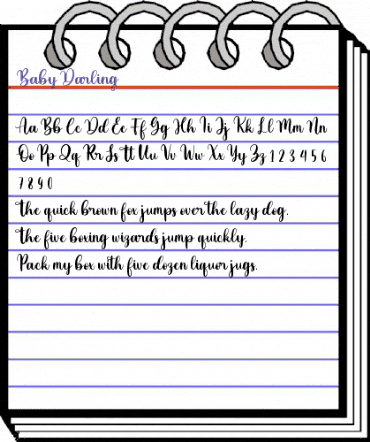 Baby Darling
Aa Bb Cc Dd Ee Ff Gg Hh Ii Jj Kk Ll Mm Nn
Oo Pp Qq Rr Ss Tt Uu Vv Ww Xx Yy Zz 1 2 3 4 5 6
7 8 9 0
The quick brown fox jumps over the lazy dog.
The five boxing wizards jump quickly.
Pack my box with five dozen liquor jugs.